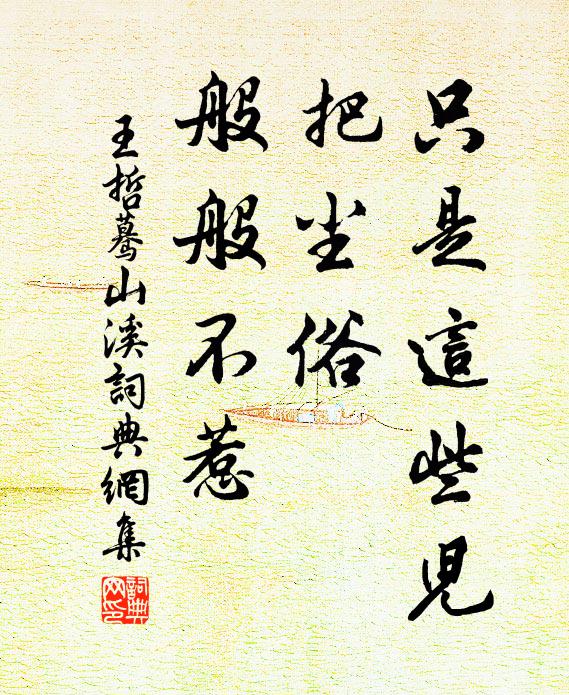 只是這些児
把尘俗
般般不惹
王哲蓦山溪詞典網集
詞典网印